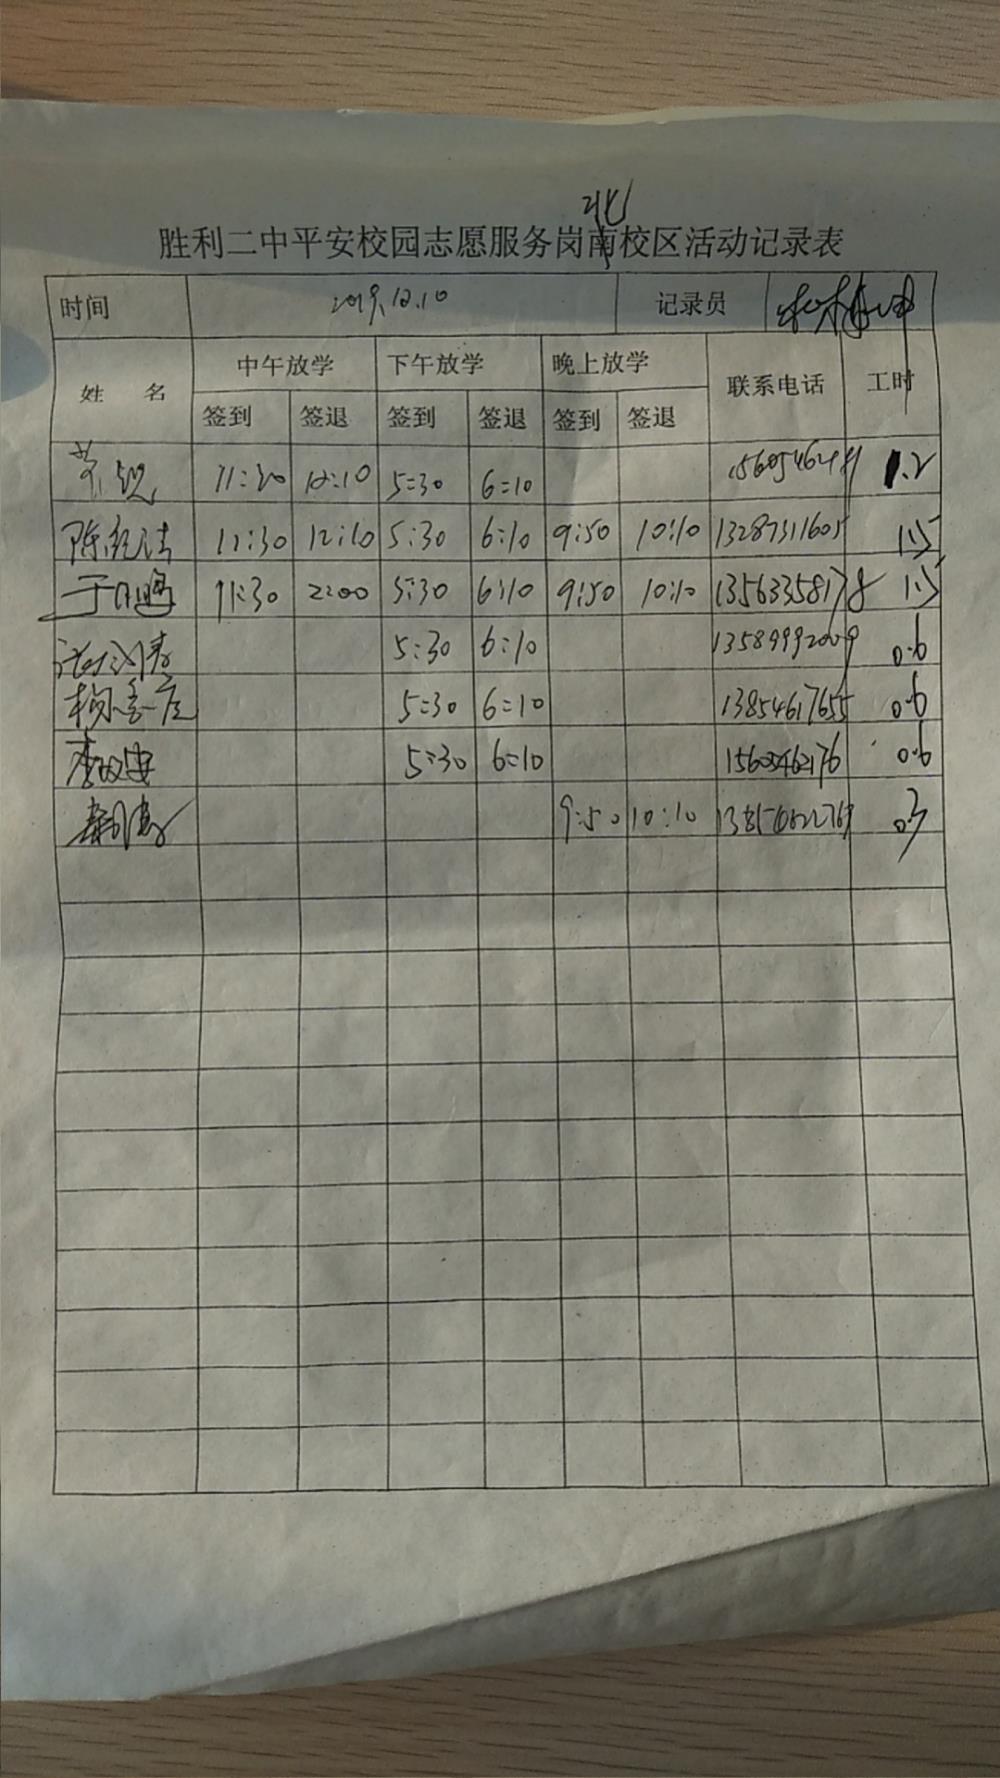 北
胜利二中平安校园志愿服务岗南校区活动记录表
时间 2019.12.10 记录员
姓 名 中午放学 下午放学 晚上放学 联系电话 工时
签到 签退 签到 签退 签到 签退
11:30 12:10 5:30 6:10 1.2
11:30 12:10 5:30 6:10 9:50 10:10 13287311605 1.5
11:30 2:00 5:30 6:10 9:50 10:10 13563358178 1.5
5:30 6:10 13589992009 0.6
5:30 6:10 13854617655 0.6
5:30 6:10 0.6
9:50 10:10 0.3